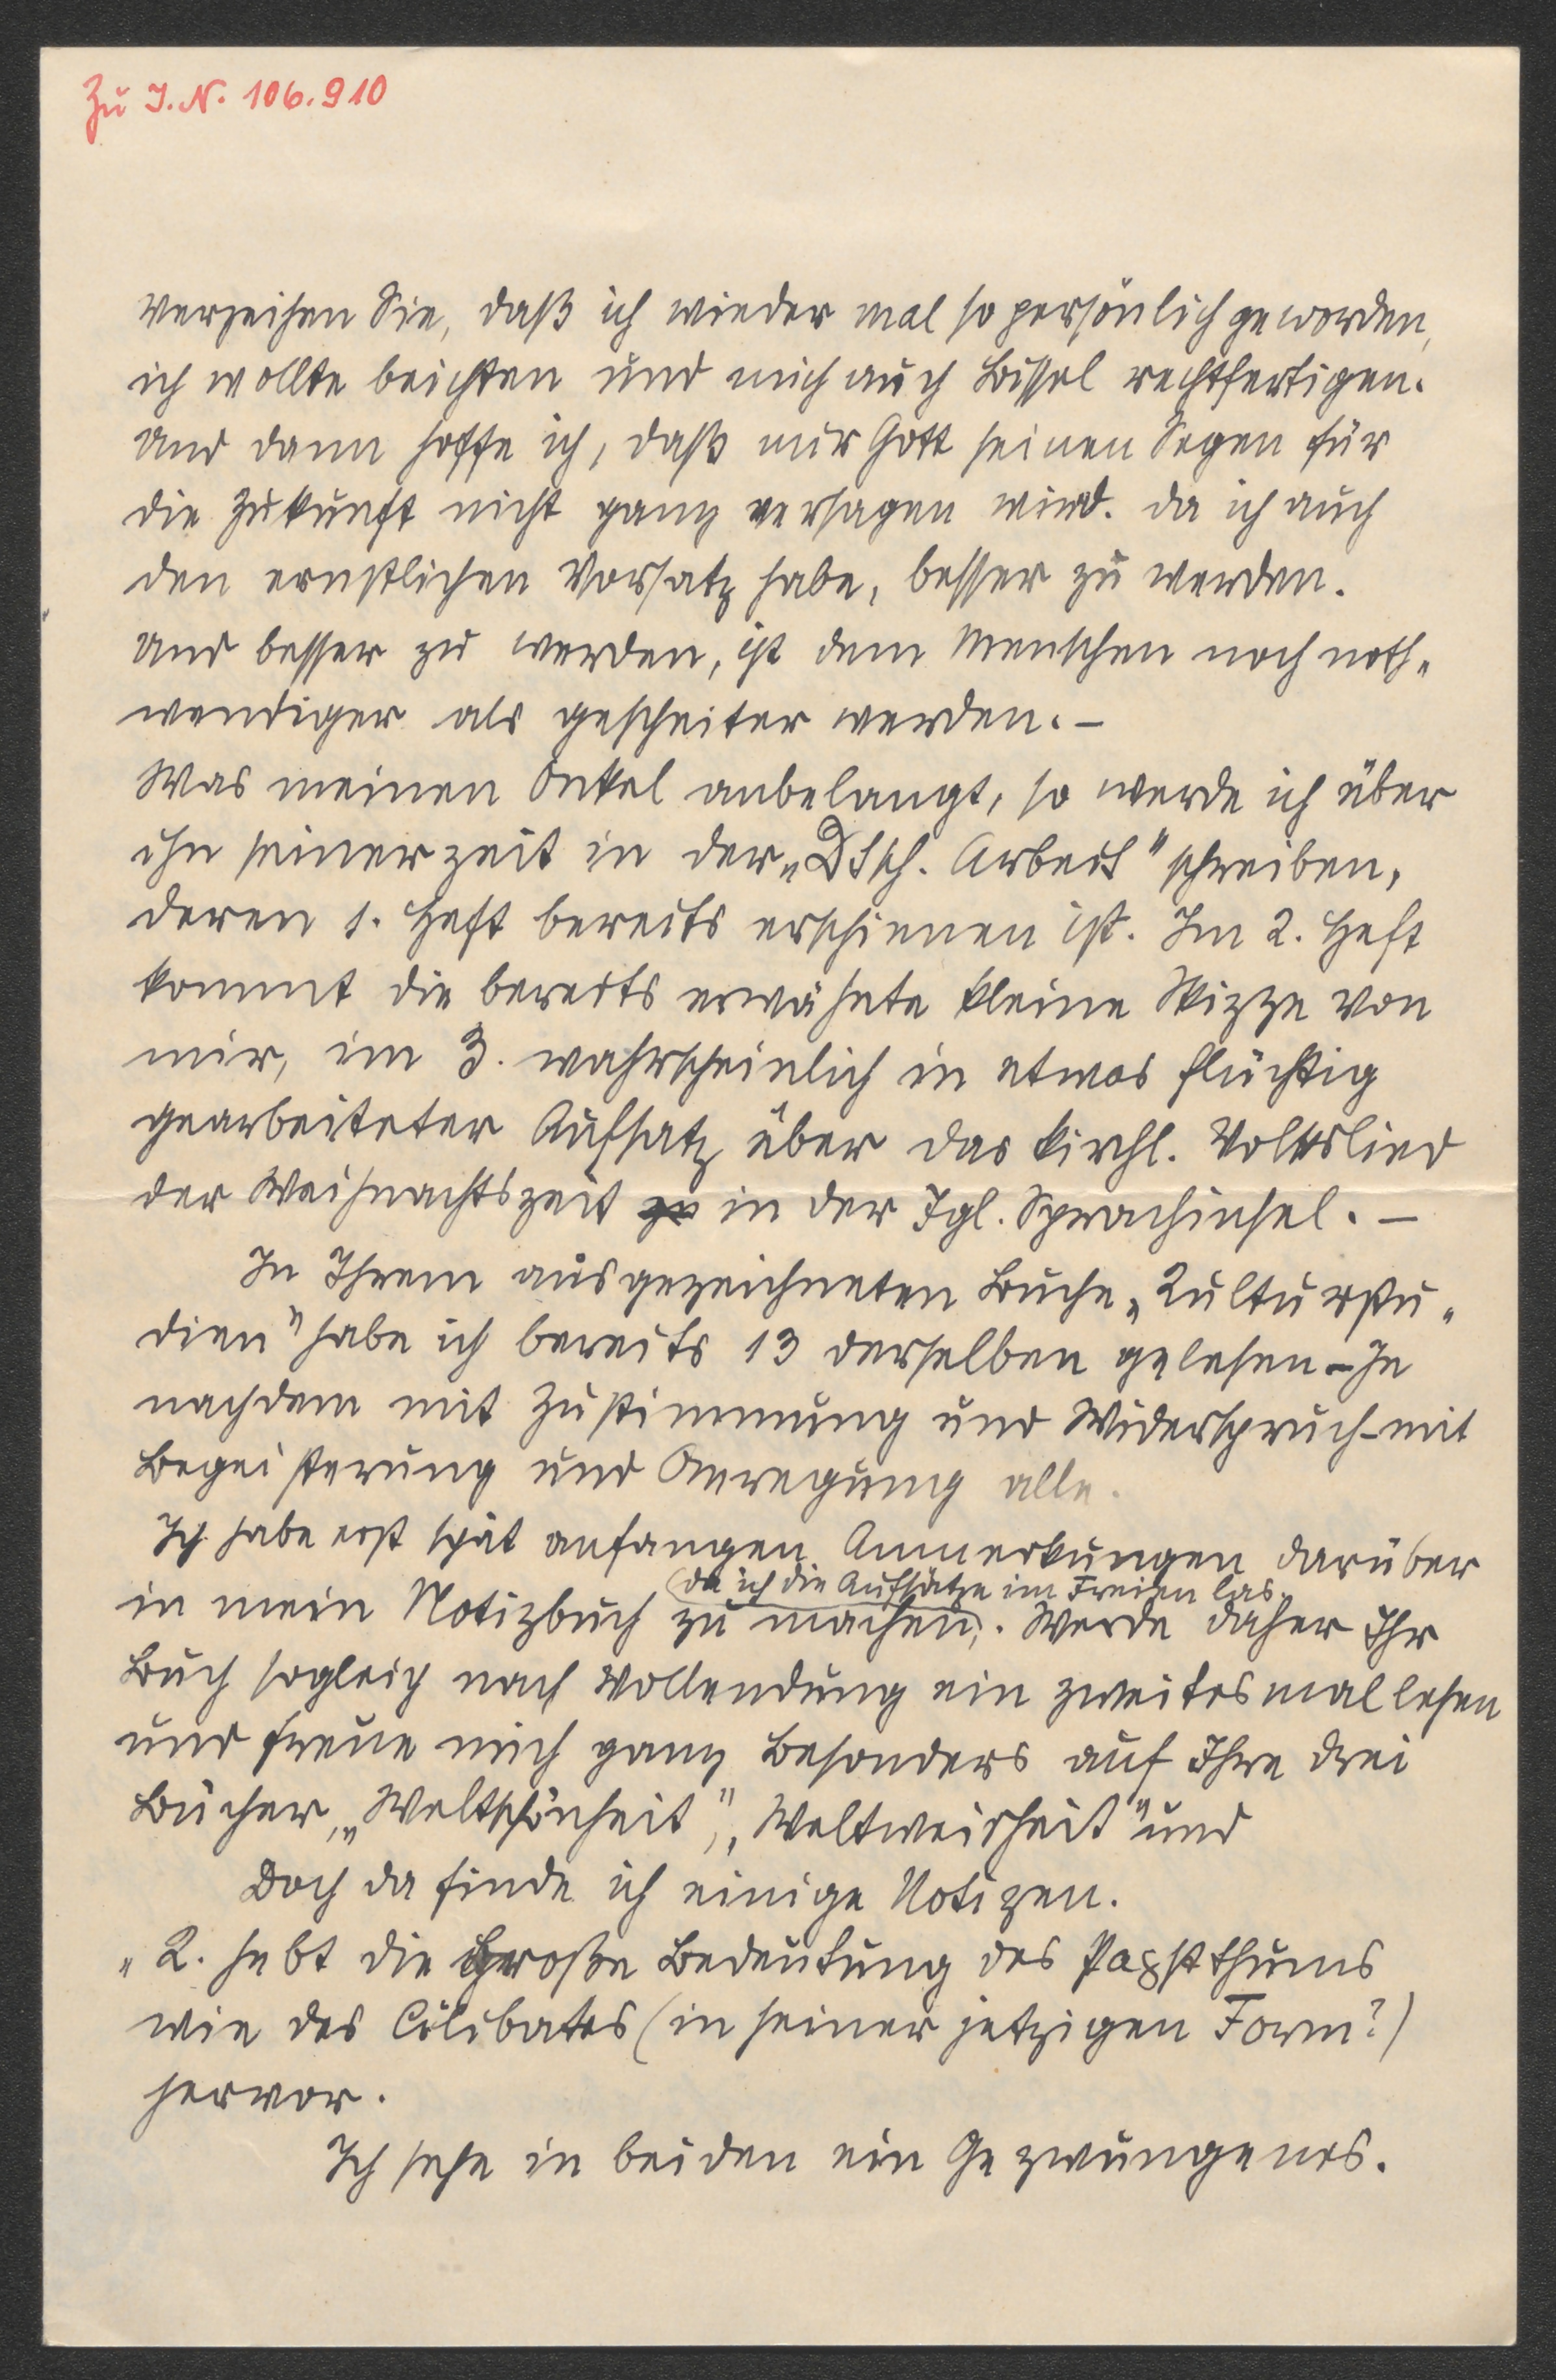 Zu I.N. 106.910
Verzeihen Sie, daß ich wieder mal so persönlich geworden,
ich wollte beichten und mich auch bissel rechtfertigen.
Und dann hoffe ich, daß mir Gott seinen Segen für
die Zukunft nicht ganz versagen wird. Da ich auch
den ernstlichen Vorsatz habe, besser zu werden.
Und besser zu werden, ist dem Menschen noch noth-
wendiger als gescheiter werden. –
Was meinen Onkel anbelangt, so werde ich über
ihn seinerzeit in der „Dtsch. Arbeit" schreiben,
deren 1. Heft bereits erschienen ist. Im 2. Heft
kommt die bereits erwähnte kleine Skizze von
mir, im 3. wahrscheinlich in etwas flüchtig
gearbeiteter Aufsatz über das kirchl. Volkslied
der Weihnachtszeit in der Igl. Sprachinsel. –
In Ihrem ausgezeichneten Buche „Kulturstu-
dien" habe ich bereits 13 derselben gelesen – Je
nachdem mit Zustimmung und Widerspruch – mit
Begeisterung und Anregung alle.
Ich habe erst spät anfangen Anmerkungen darüber
(da ich die Aufsätze im Freien las)
in mein Notizbuch zu machen. Werde daher Ihr
Buch sogleich nach Vollendung ein zweitesmal lesen
und freue mich ganz besonders auf Ihre drei
Bücher, „Weltschönheit", „Weltweisheit" und
Doch da finde ich einige Notizen.
„K. hebt die große Bedeutung des Papstthums
wie des Cölibates (in seiner jetzigen Form?)
hervor.
Ich sehe in beiden ein Gezwungenes.